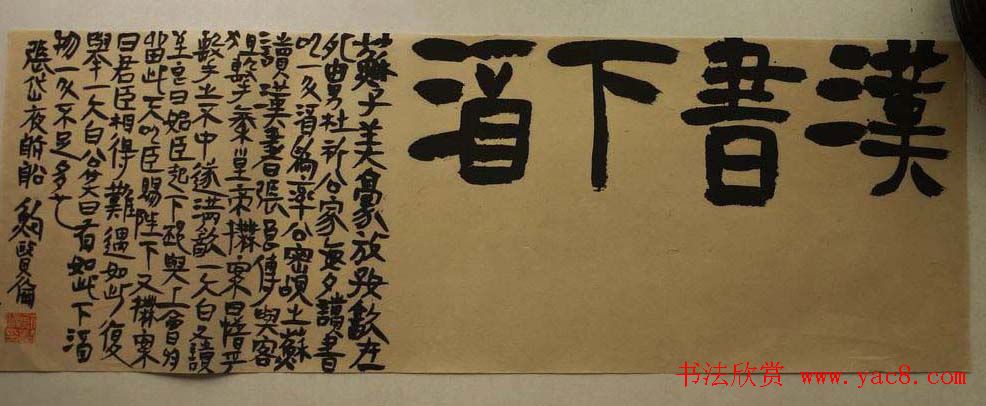 漢書下酒
蘇子美豪放好飲在
外舅杜祁公家每夕讀書
以一斗酒為率公密覘之蘇
讀漢書張良傳與客
狙擊秦皇帝撫案曰惜乎
擊之不中遂滿飲一大白又讀
至良曰始臣起下邳與上會於
留此天以臣賜陛下又撫案
曰君臣相得難遇如此復
舉一大白公笑曰有如此下酒
物一斗不足多也
張岱夜航船 鮑賢倫
书法欣赏 www.yac8.com